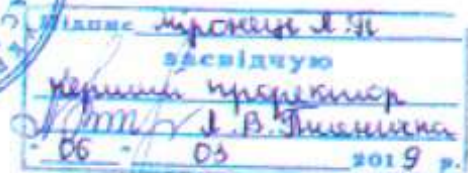 Підпис Міронець Л.П
засвідчую
перший проректор
Л.В. Пшенична
"06" 03 2019 р.